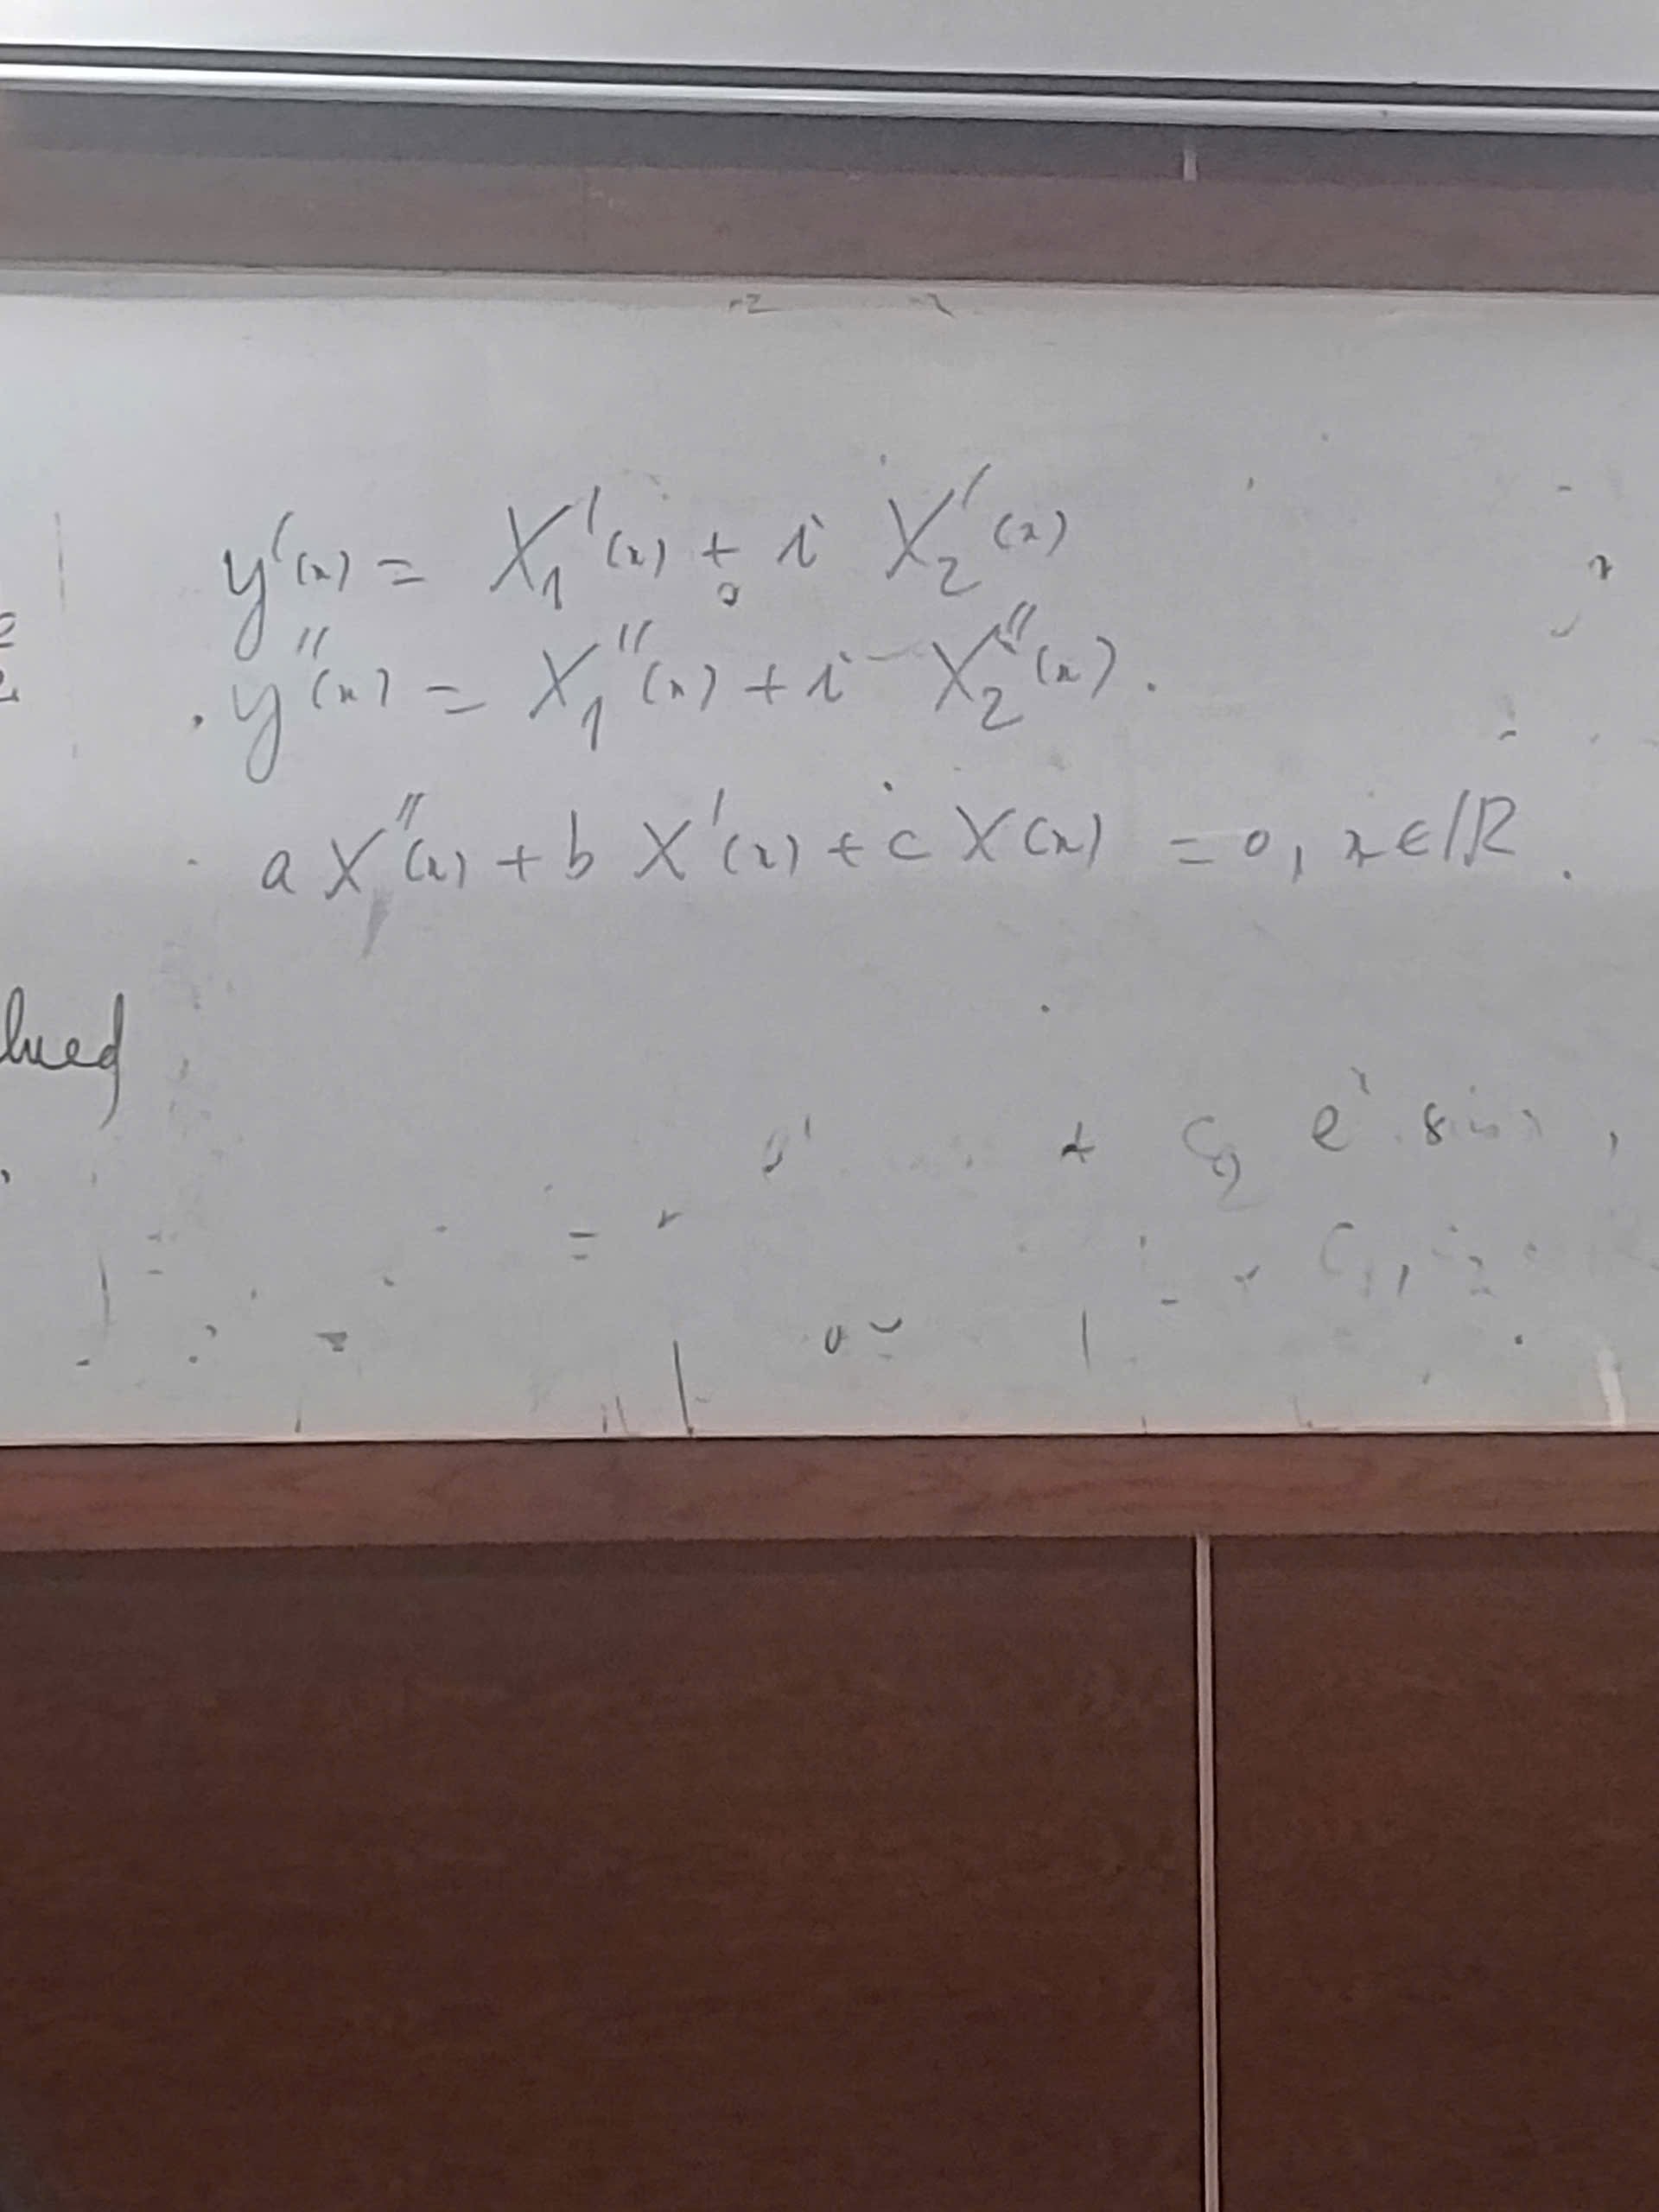 y'(x) = X₁'(x) + i X₂'(x)
y''(x) = X₁''(x) + i X₂''(x).
a X''(x) + b X'(x) + c X(x) = 0, x ∈ ℝ.
lued
+ C₂ eˣ sin